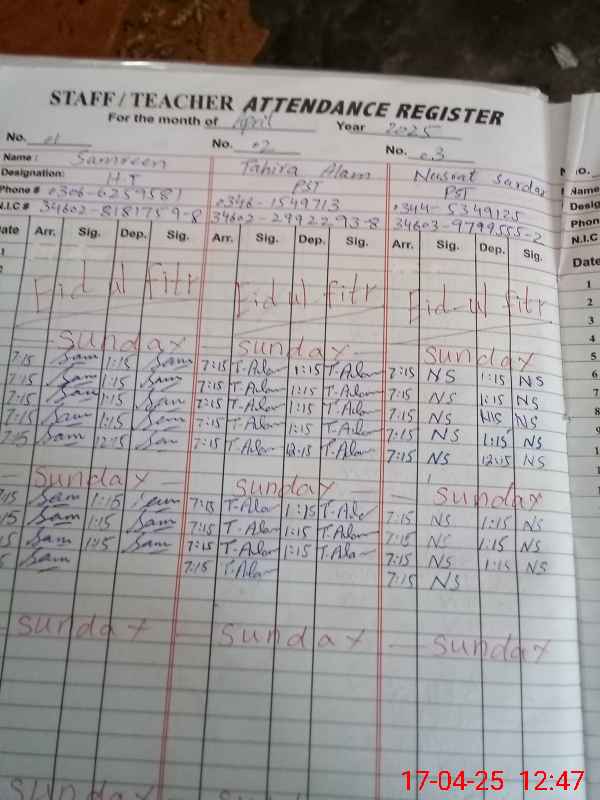 STAFF / TEACHER ATTENDANCE REGISTER
For the month of April Year 2025
No. 01 No. 02 No. 03
Name: Samreen Tahira Alam Nusrat Sardar
Designation: HT PST PST
Phone # 0306-6259581 0346-1549713 0344-5349125
N.I.C # 34602-8181759-8 34602-2992293-8 34603-9799555-2
Date Arr. Sig. Dep. Sig. Arr. Sig. Dep. Sig. Arr. Sig. Dep. Sig.
1
2
Eid ul fitr Eid ul fitr Eid-ul fitr
Sunday Sunday Sunday
7:15 Sam 1:15 Sam 7:15 T.Alam 1:15 T.Alam 7:15 NS 1:15 NS
7:15 Sam 1:15 Sam 7:15 T.Alam 1:15 T.Alam 7:15 NS 1:15 NS
7:15 Sam 1:15 Sam 7:15 T.Alam 1:15 T.Alam 7:15 NS NS
7:15 Sam 1:15 Sam 7:15 T.Alam 1:15 T.Alam 7:15 NS 1:15 NS
7:15 Sam 12:15 Sam 7:15 T.Alam 12:15 T.Alam 7:15 NS 12:15 NS
Sunday Sunday Sunday
7:15 Sam 1:15 Sam 7:15 T.Alam 1:15 T.Alam 7:15 NS 1:15 NS
15 Sam 1:15 Sam 7:15 T.Alam 1:15 T.Alam 7:15 NS 1:15 NS
15 Sam 1:15 Sam 7:15 T.Alam 1:15 T.Alam 7:15 NS 1:15 NS
5 Sam 7:15 T.Alam 7:15 NS
Sunday Sunday Sunday
Sunday Sunday
No.
Name
Desig
Phone
N.I.C
Date
1
2
3
4
5
6
7
8
9
17-04-25 12:47